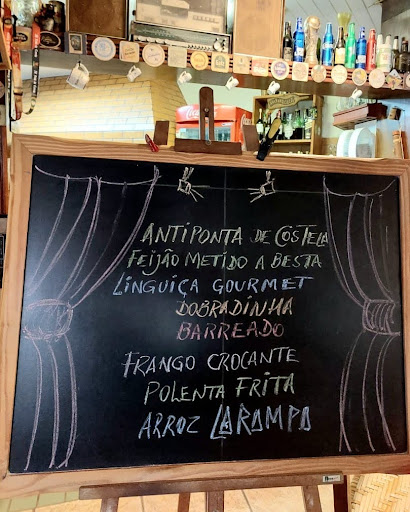 ANTIPONTA DE COSTELA
FEIJÃO METIDO A BESTA
LINGUIÇA GOURMET
DOBRADINHA
BARREADO
FRANGO CROCANTE
POLENTA FRITA
ARROZ LAROMPO